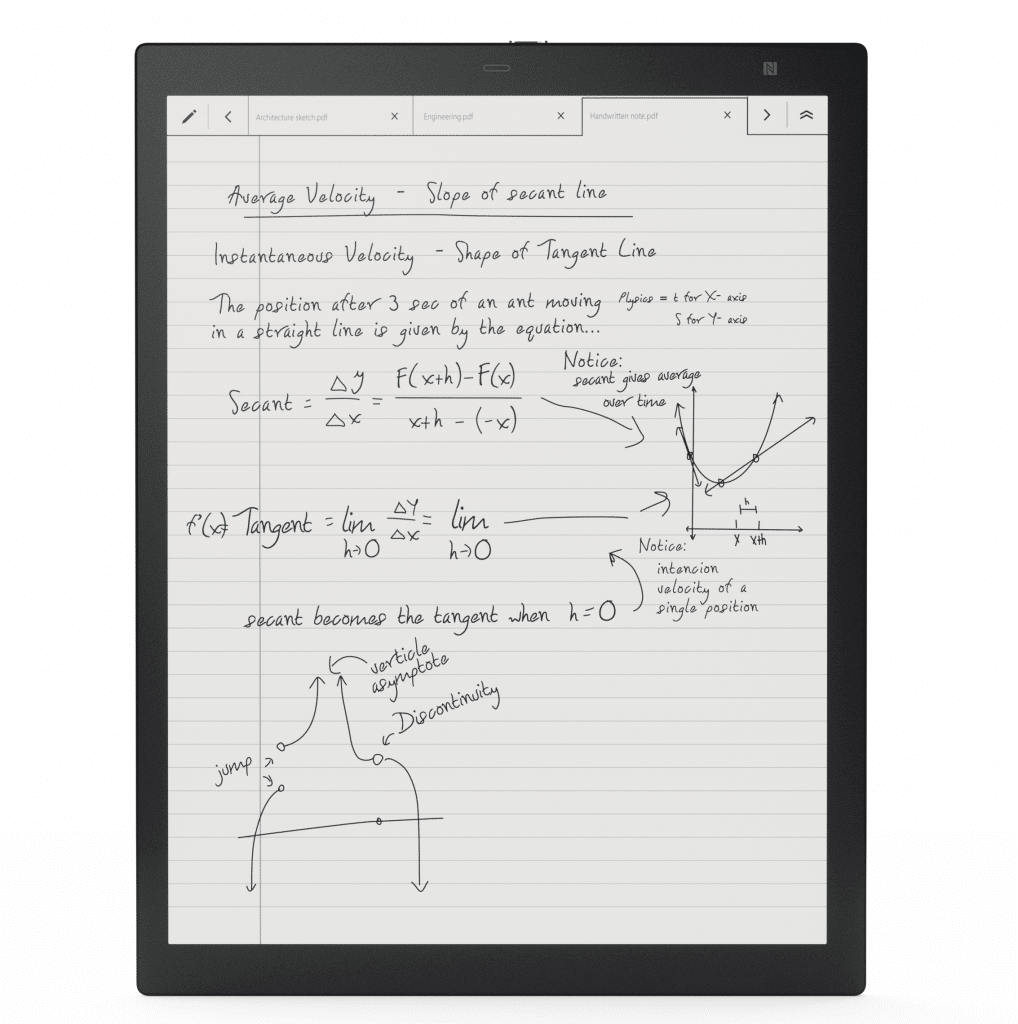 Architecture sketch.pdf
Engineering.pdf
Handwritten note.pdf
Average Velocity - Slope of secant line
Instantaneous Velocity - Shape of Tangent Line
The position after 3 sec of an ant moving
in a straight line is given by the equation...
Physics = t for X- axis
S for Y- axis
Notice:
secant gives average
over time
Secant = Δy/Δx = F(x+h)-F(x)/x+h - (-x)
h
x x+h
f'(x) Tangent = lim h→0 Δy/Δx = lim h→0
Notice:
intencion
velocity of a
single position
secant becomes the tangent when h=0
verticle
asymptote
Discontinuity
jump